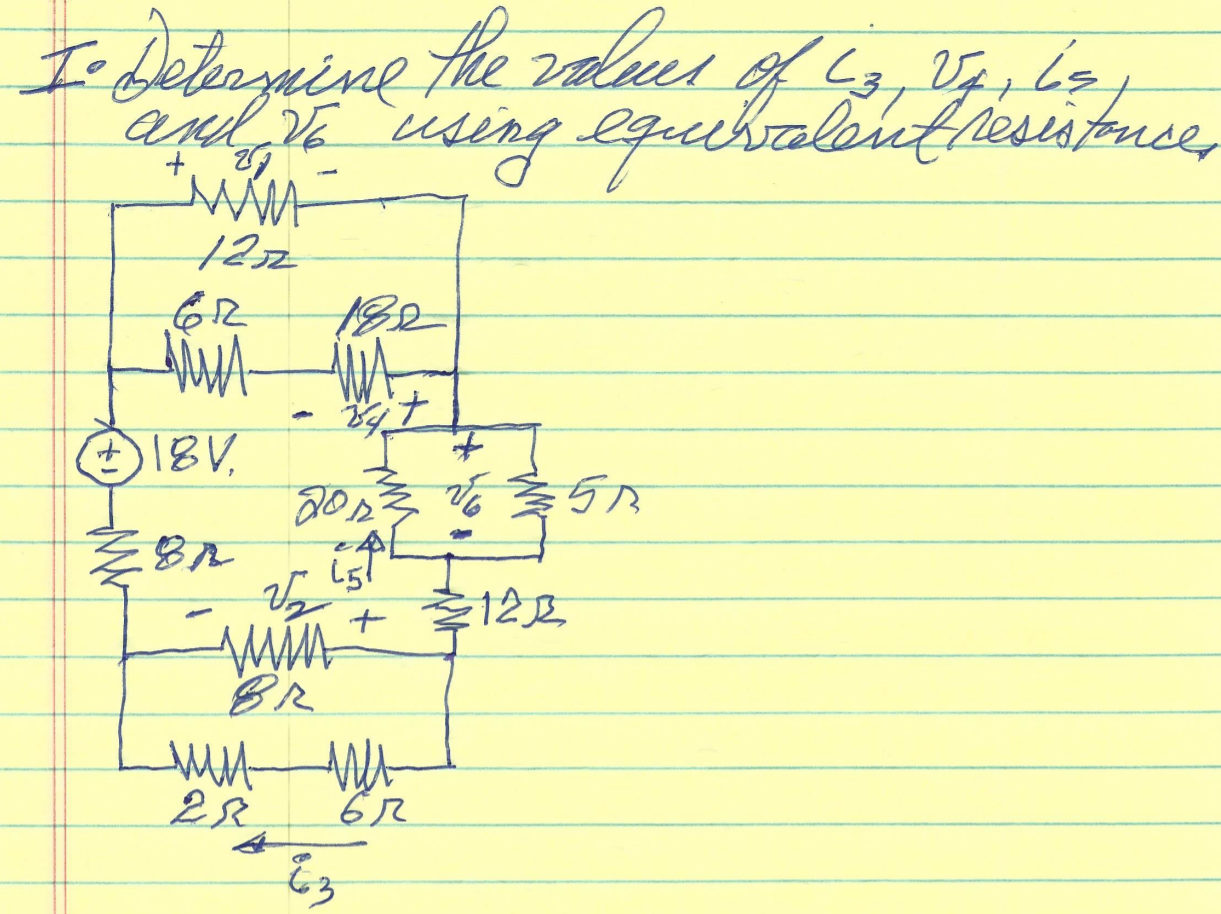 I. Determine the values of i3, v4, i5,
and v6 using equivalent resistance.
+ v1 -
12Ω
6Ω 18Ω
- v4 +
+
-
18V.
20Ω
+
v6
-
5Ω
8Ω
i5
- v2 +
12Ω
8Ω
2Ω 6Ω
i3